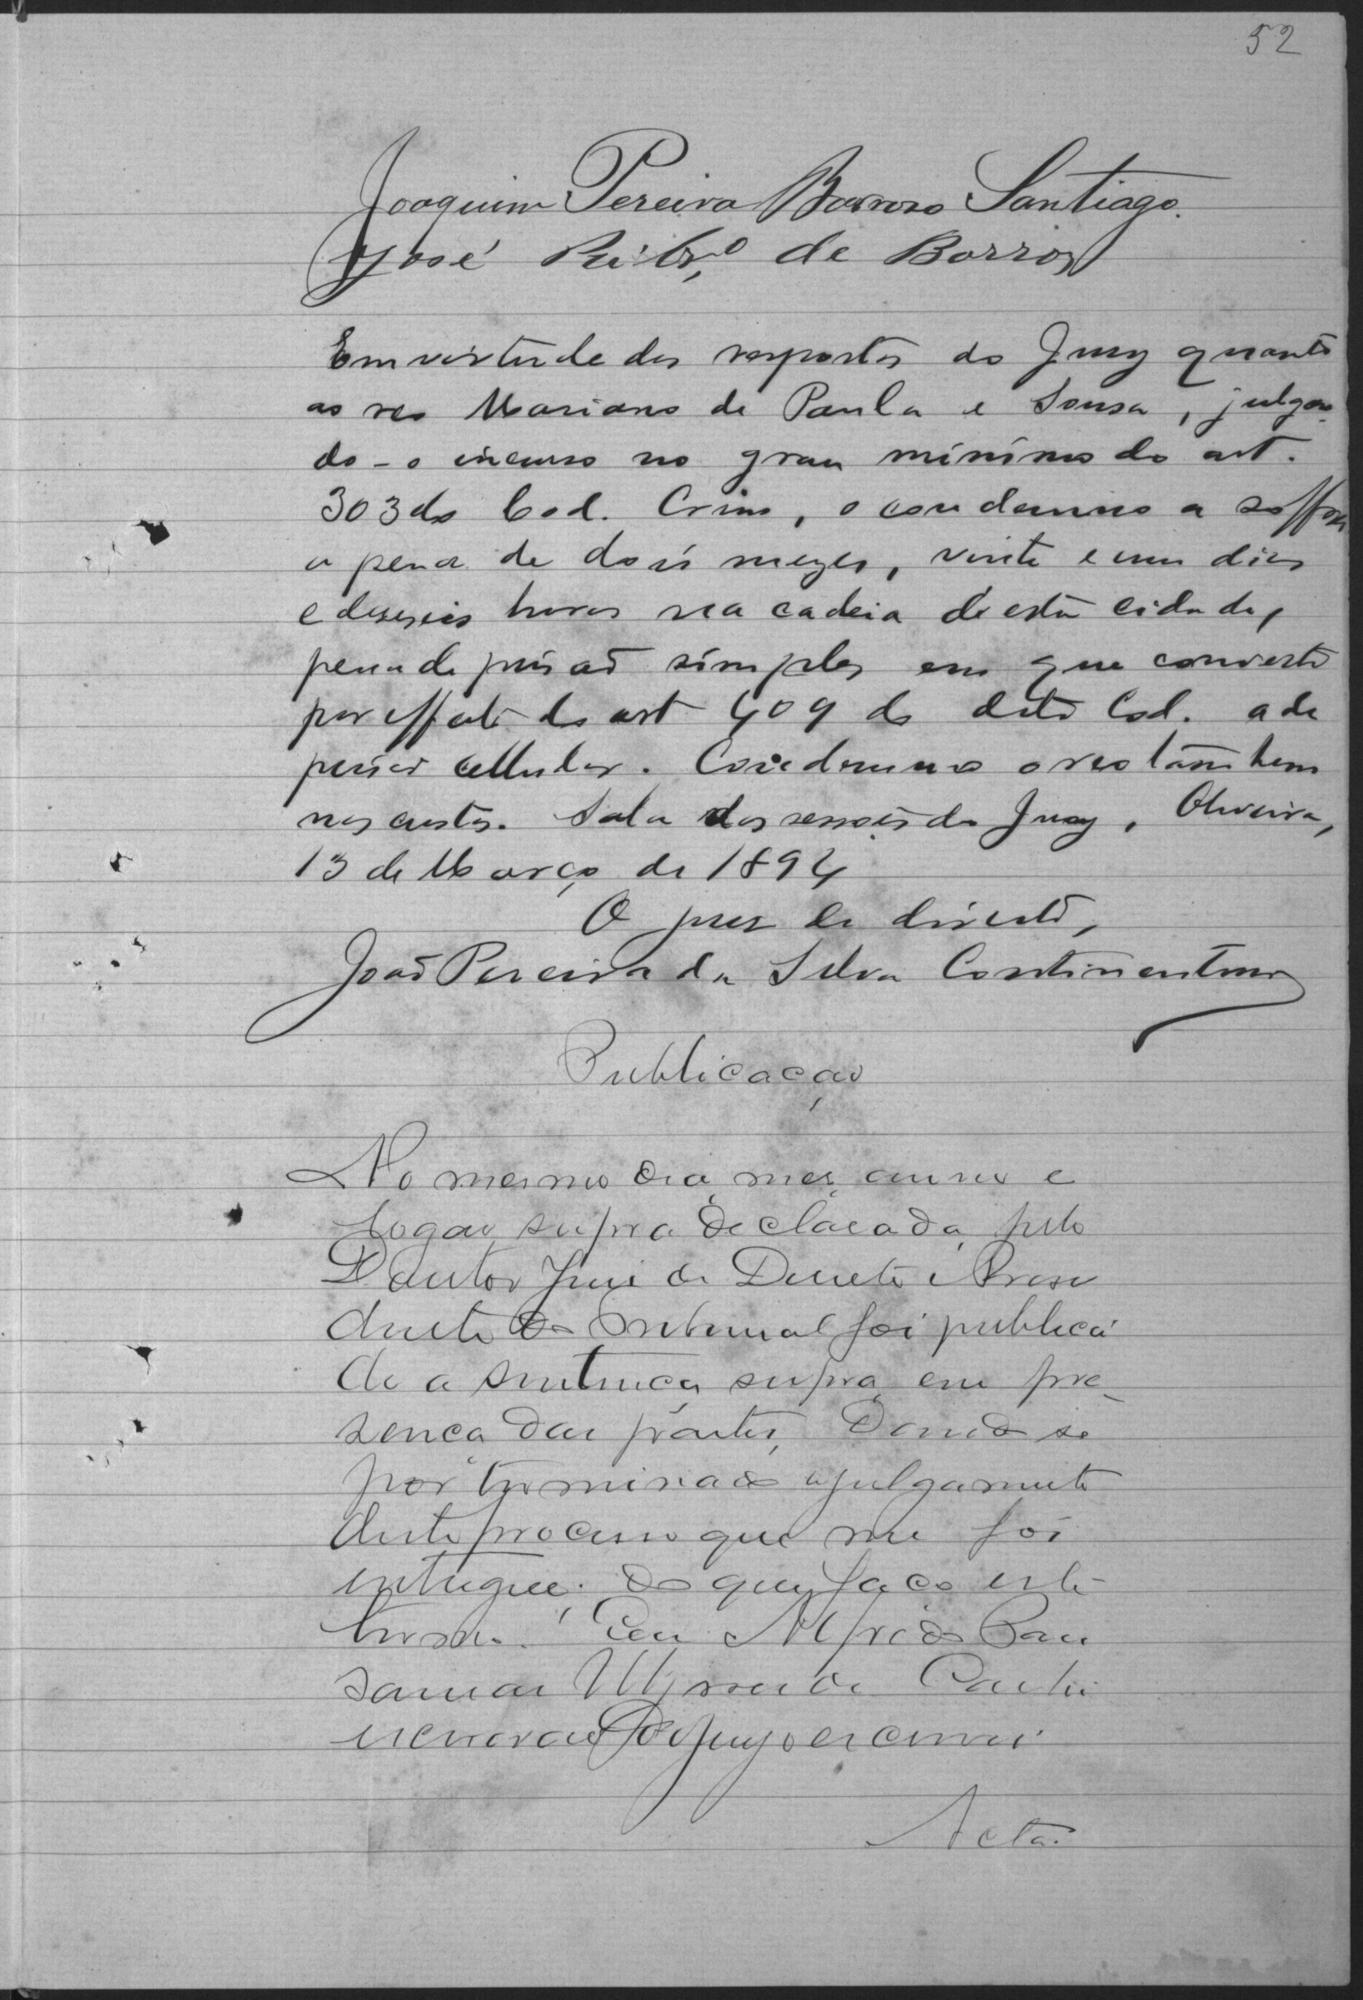 52
Joaquim Pereira Barroso Santiago.
José Ribrº de Barros
Em virtude das respostas do Jury quanto
ao reo Mariano de Paula e Sousa, julgan
do-o incurso no grau minimo do art.
303 do Cod. Crim., o condemno a soffrer
a pena de dois mezes, vinte e um dias
e deseseis horas na cadeia desta cidade,
pena de prisaõ simples em que converto
por effeito do art 409 do dito Cod. a de
prisaõ cellular. Condemno o reo tambem
nas custas. Sala das sessoẽs do Jury, Oliveira,
13 de Março de 1894
O juez de direito,
Joaõ Pereira da Silva Continentino
Publicação
No mesmo dia, mes, anno e
logar supra declarado, pelo
Doutor Juis de Direito e Presi
dente do Tribunal foi publica
do a sentença supra em pre_
sença das partes, dando se
por terminado o julgamento
deste processo que me foi
entregue; do que faço este
termo. Eu Alfredo
de
escrivão do Jury o escrevi
Acta.